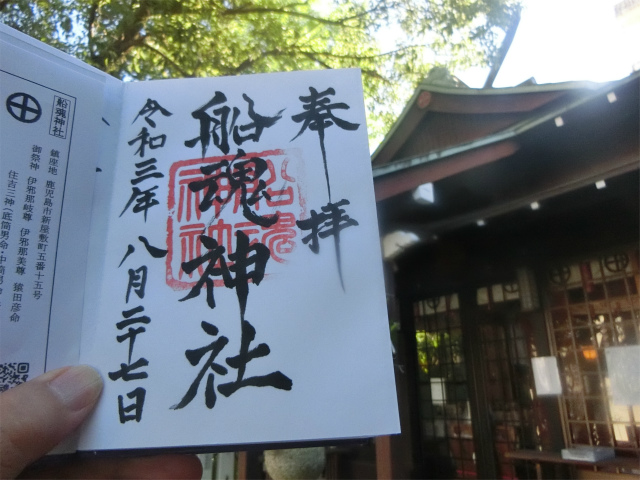 奉拝
船魂神社
令和三年八月二十七日
船魂神社
船魂神社
鎮座地 鹿児島市新屋敷町五番十五号
御祭神 伊邪那岐尊 伊邪那美尊 猿田彦命
住吉三神(底筒男命・中筒男命